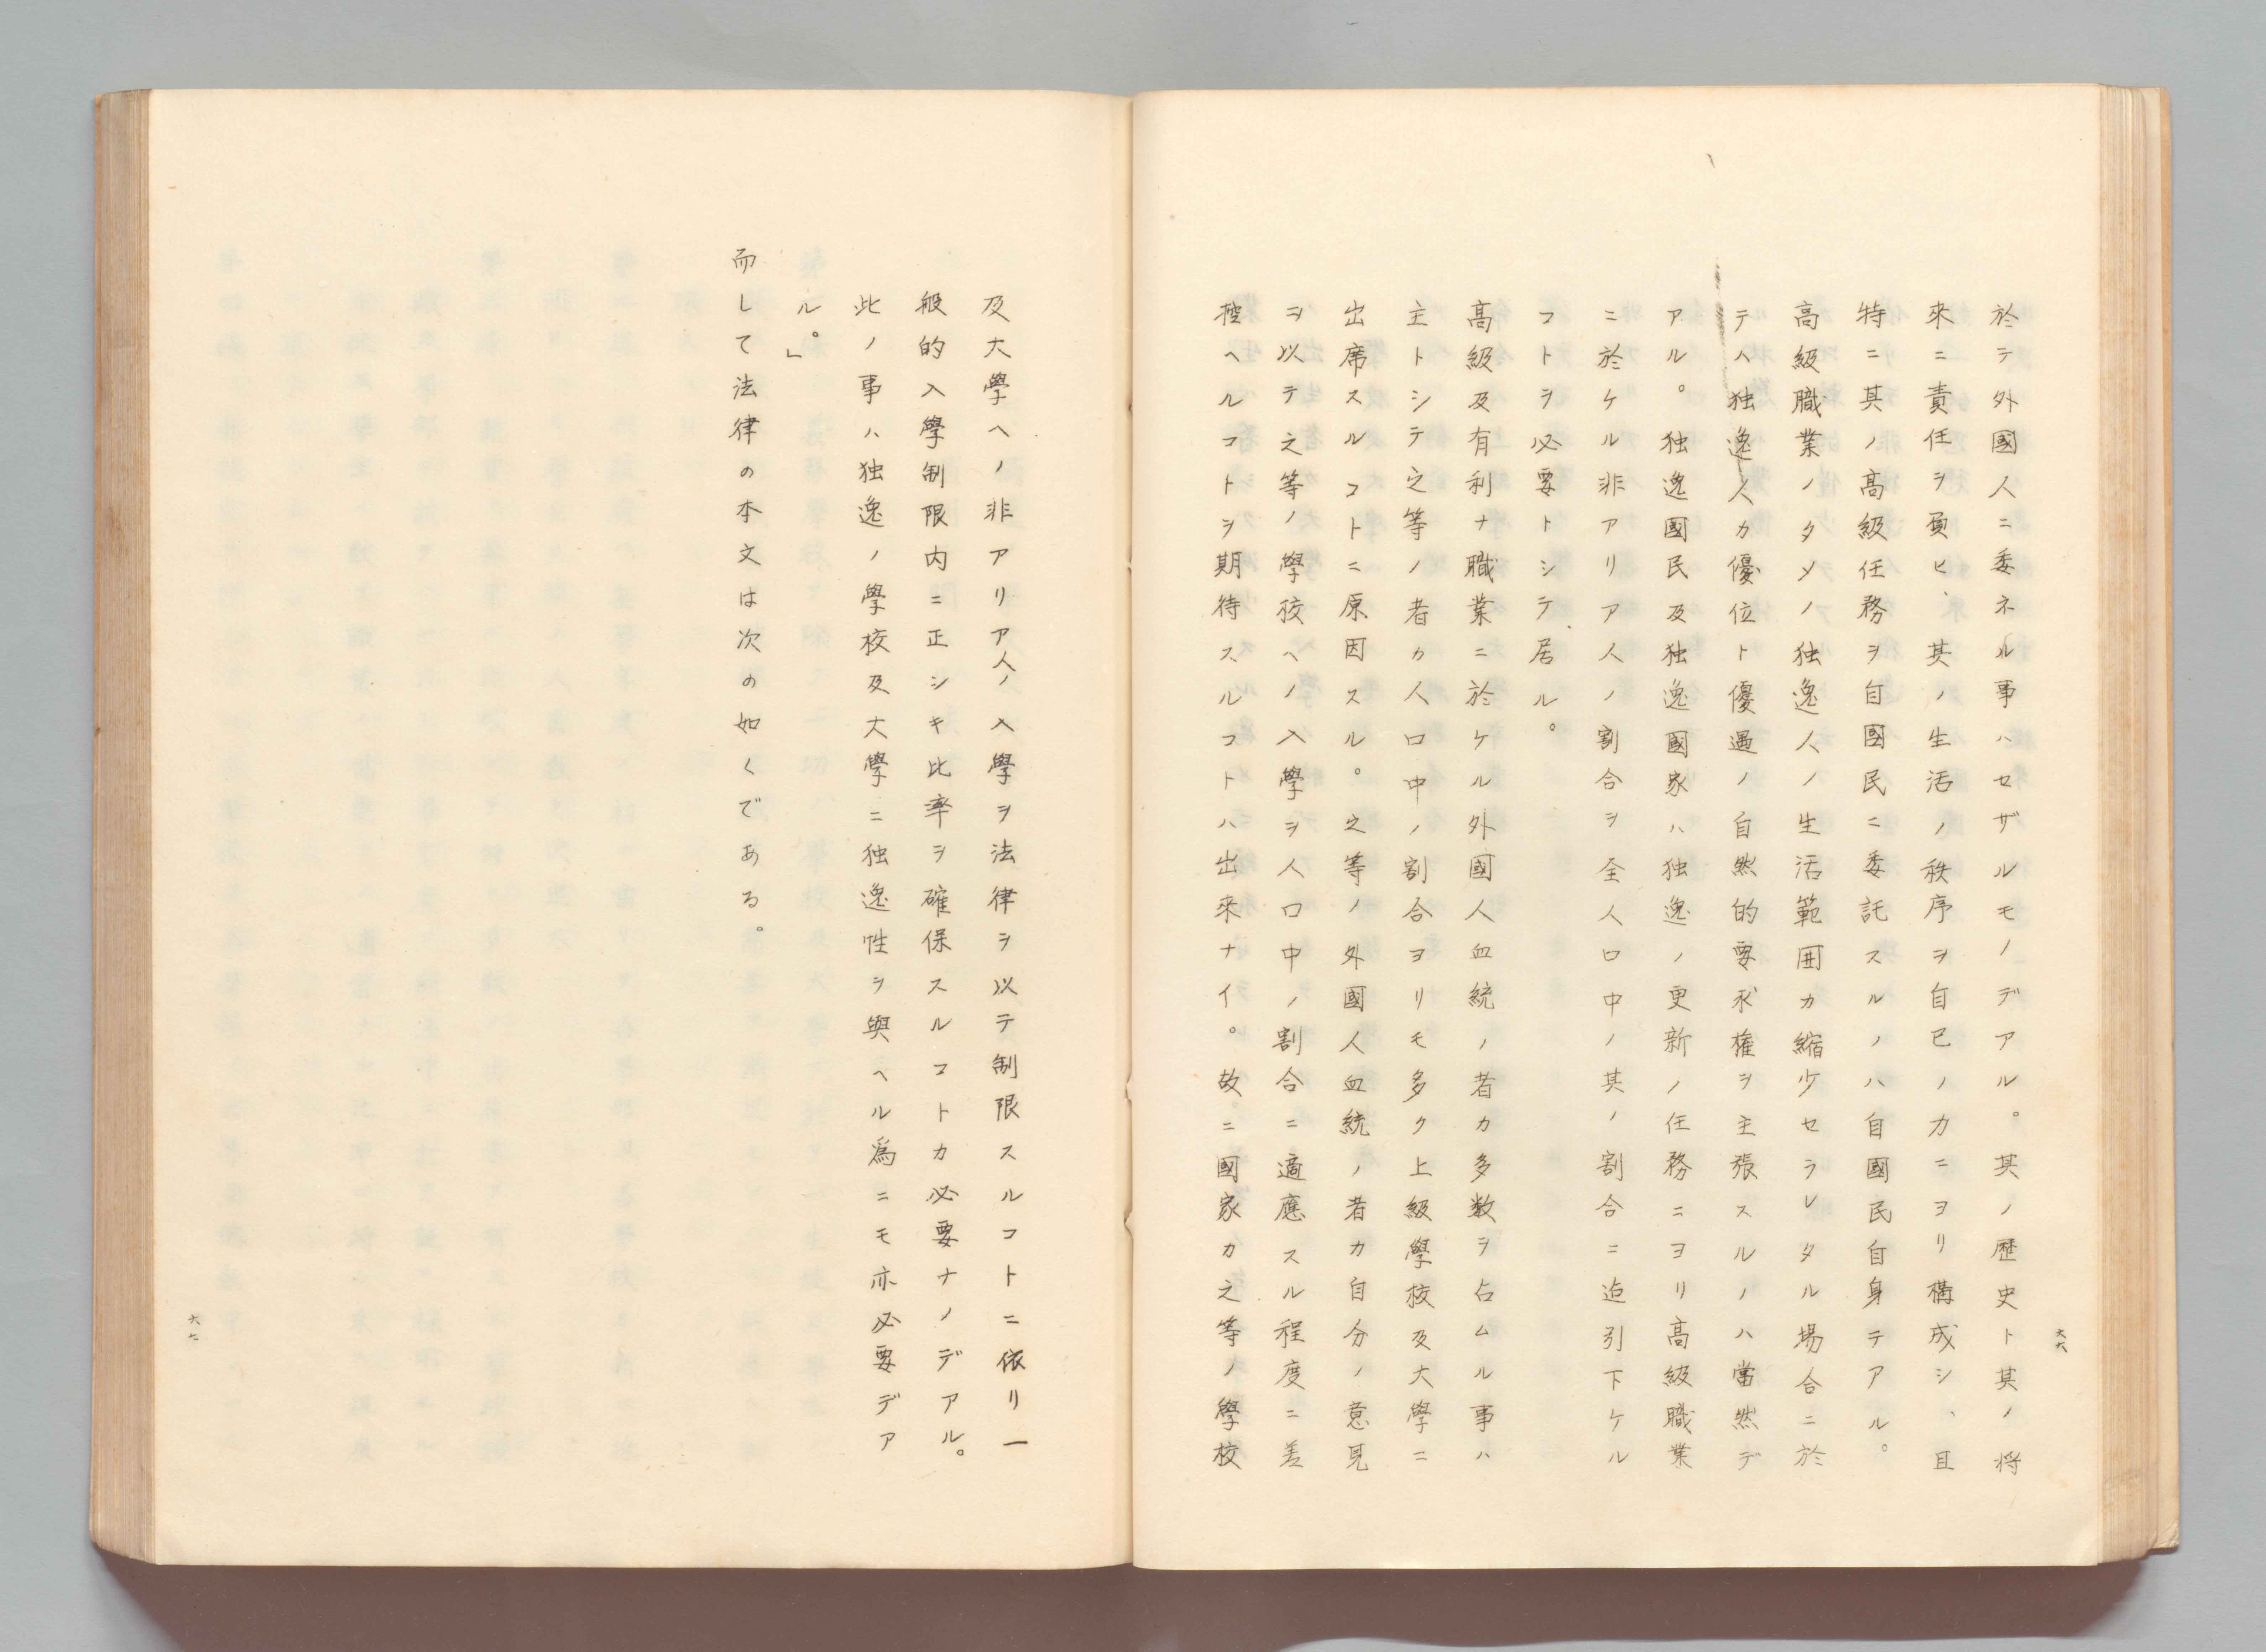 於テ外國人ニ委ネル事ハセザルモノデアル。其ノ歴史ト其ノ将
來ニ責任ヲ負ヒ、其ノ生活ノ秩序ヲ自己ノカニヨリ構成シ、且
特ニ其ノ高級任務ヲ自國民ニ委託スルノハ自國民自身テアル。
高級職業ノタメノ独逸人ノ生活範囲カ縮少セラレタル場合ニ於
テハ独逸人カ優位ト優遇ノ自然的要求権ヲ主張スルノハ當然デ
アル。独逸國民及独逸國家ハ独逸ノ更新ノ任務ニヨリ高級職業
ニ於ケル非アリアン人ノ割合ヲ全人口中ノ其ノ割合ニ迄引下ケル
コトヲ必要トシテ居ル。
高級及有利ナ職業ニ於ケル外國人血統ノ者カ多数ヲ占ムル事ハ
主トシテ之等ノ者カ人口中ノ割合ヨリモ多ク上級學校及大學ニ
出席スルコトニ原因スル。之等ノ外國人血統ノ者カ自分ノ意見
ヲ以テ之等ノ學校ヘノ入學ヲ人口中ノ割合ニ適應スル程度ニ差
控ヘルコトヲ期待スルコトハ出來ナイ。故ニ國家カ之等ノ學校
六六
及大學ヘノ非アリアン人ノ入學ヲ法律ヲ以テ制限スルコトニ依リ一
般的入學制限内ニ正シキ比率ヲ確保スルコトカ必要ナノデアル。
此ノ事ハ独逸ノ學校及大學ニ独逸性ヲ與ヘル為ニモ亦必要デア
ル。」
而して法律の本文は次の如くである。
六七